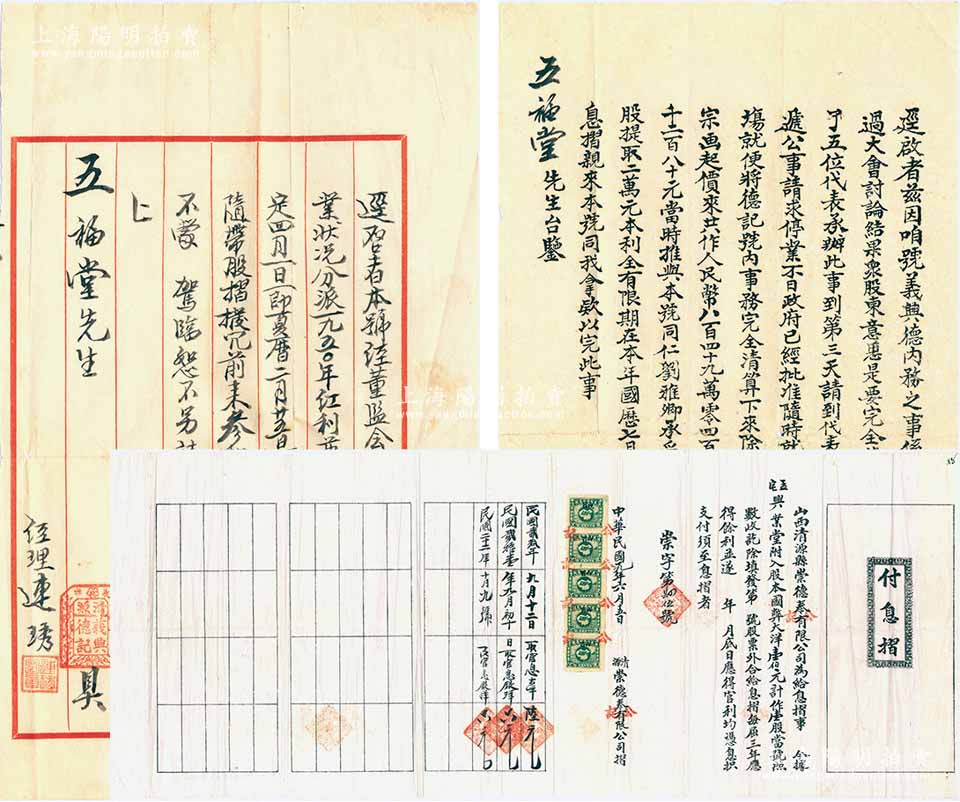 逕啟者兹因咱號義興德內務之事係
過大會討論結果衆股東意思是要完全
了五位代表承辦此事到第三天請到代表
遞公事請求停業不日政府已經批准隨時就
塲就便將德記號內事務完全清算下來除
宗画起價來共作人民幣八百四十九萬零四百
千二百八十元當時推與本號同仁劉雅卿承受
股提取二萬元本利全有限期在本年國歷七月
息摺親來本號同我拿欵以完此事
五福堂先生台鑒
逕啓者本號经董监会
業狀况分派一九五〇年红利並
定四月一日即夏曆二月廿五日
隨帶股摺撥冗前来參加
不愛 駕臨恕不另
上
五福堂先生
经理 連琇 具
清義興
德記
付息摺
山西清源縣崇德泰有限公司為給息摺事 今據
興業堂附入股本國幣大洋壹佰元計作壹股當號照
數收訖除填發第 號股票外合給息摺每屆三年應
得餘利並逐 年 月底日應得官利均憑息摺
支付須至息摺者
崇字第 號
中華民國九年六月五日
清源 崇德泰有限公司摺
民國貳拾年 九月十二日 取官息大洋 陸元
民國貳拾壹年九月 日取官息殷洋 六元
民國二十二年 十月九號 取官息殷洋 六元
上海陽明拍賣